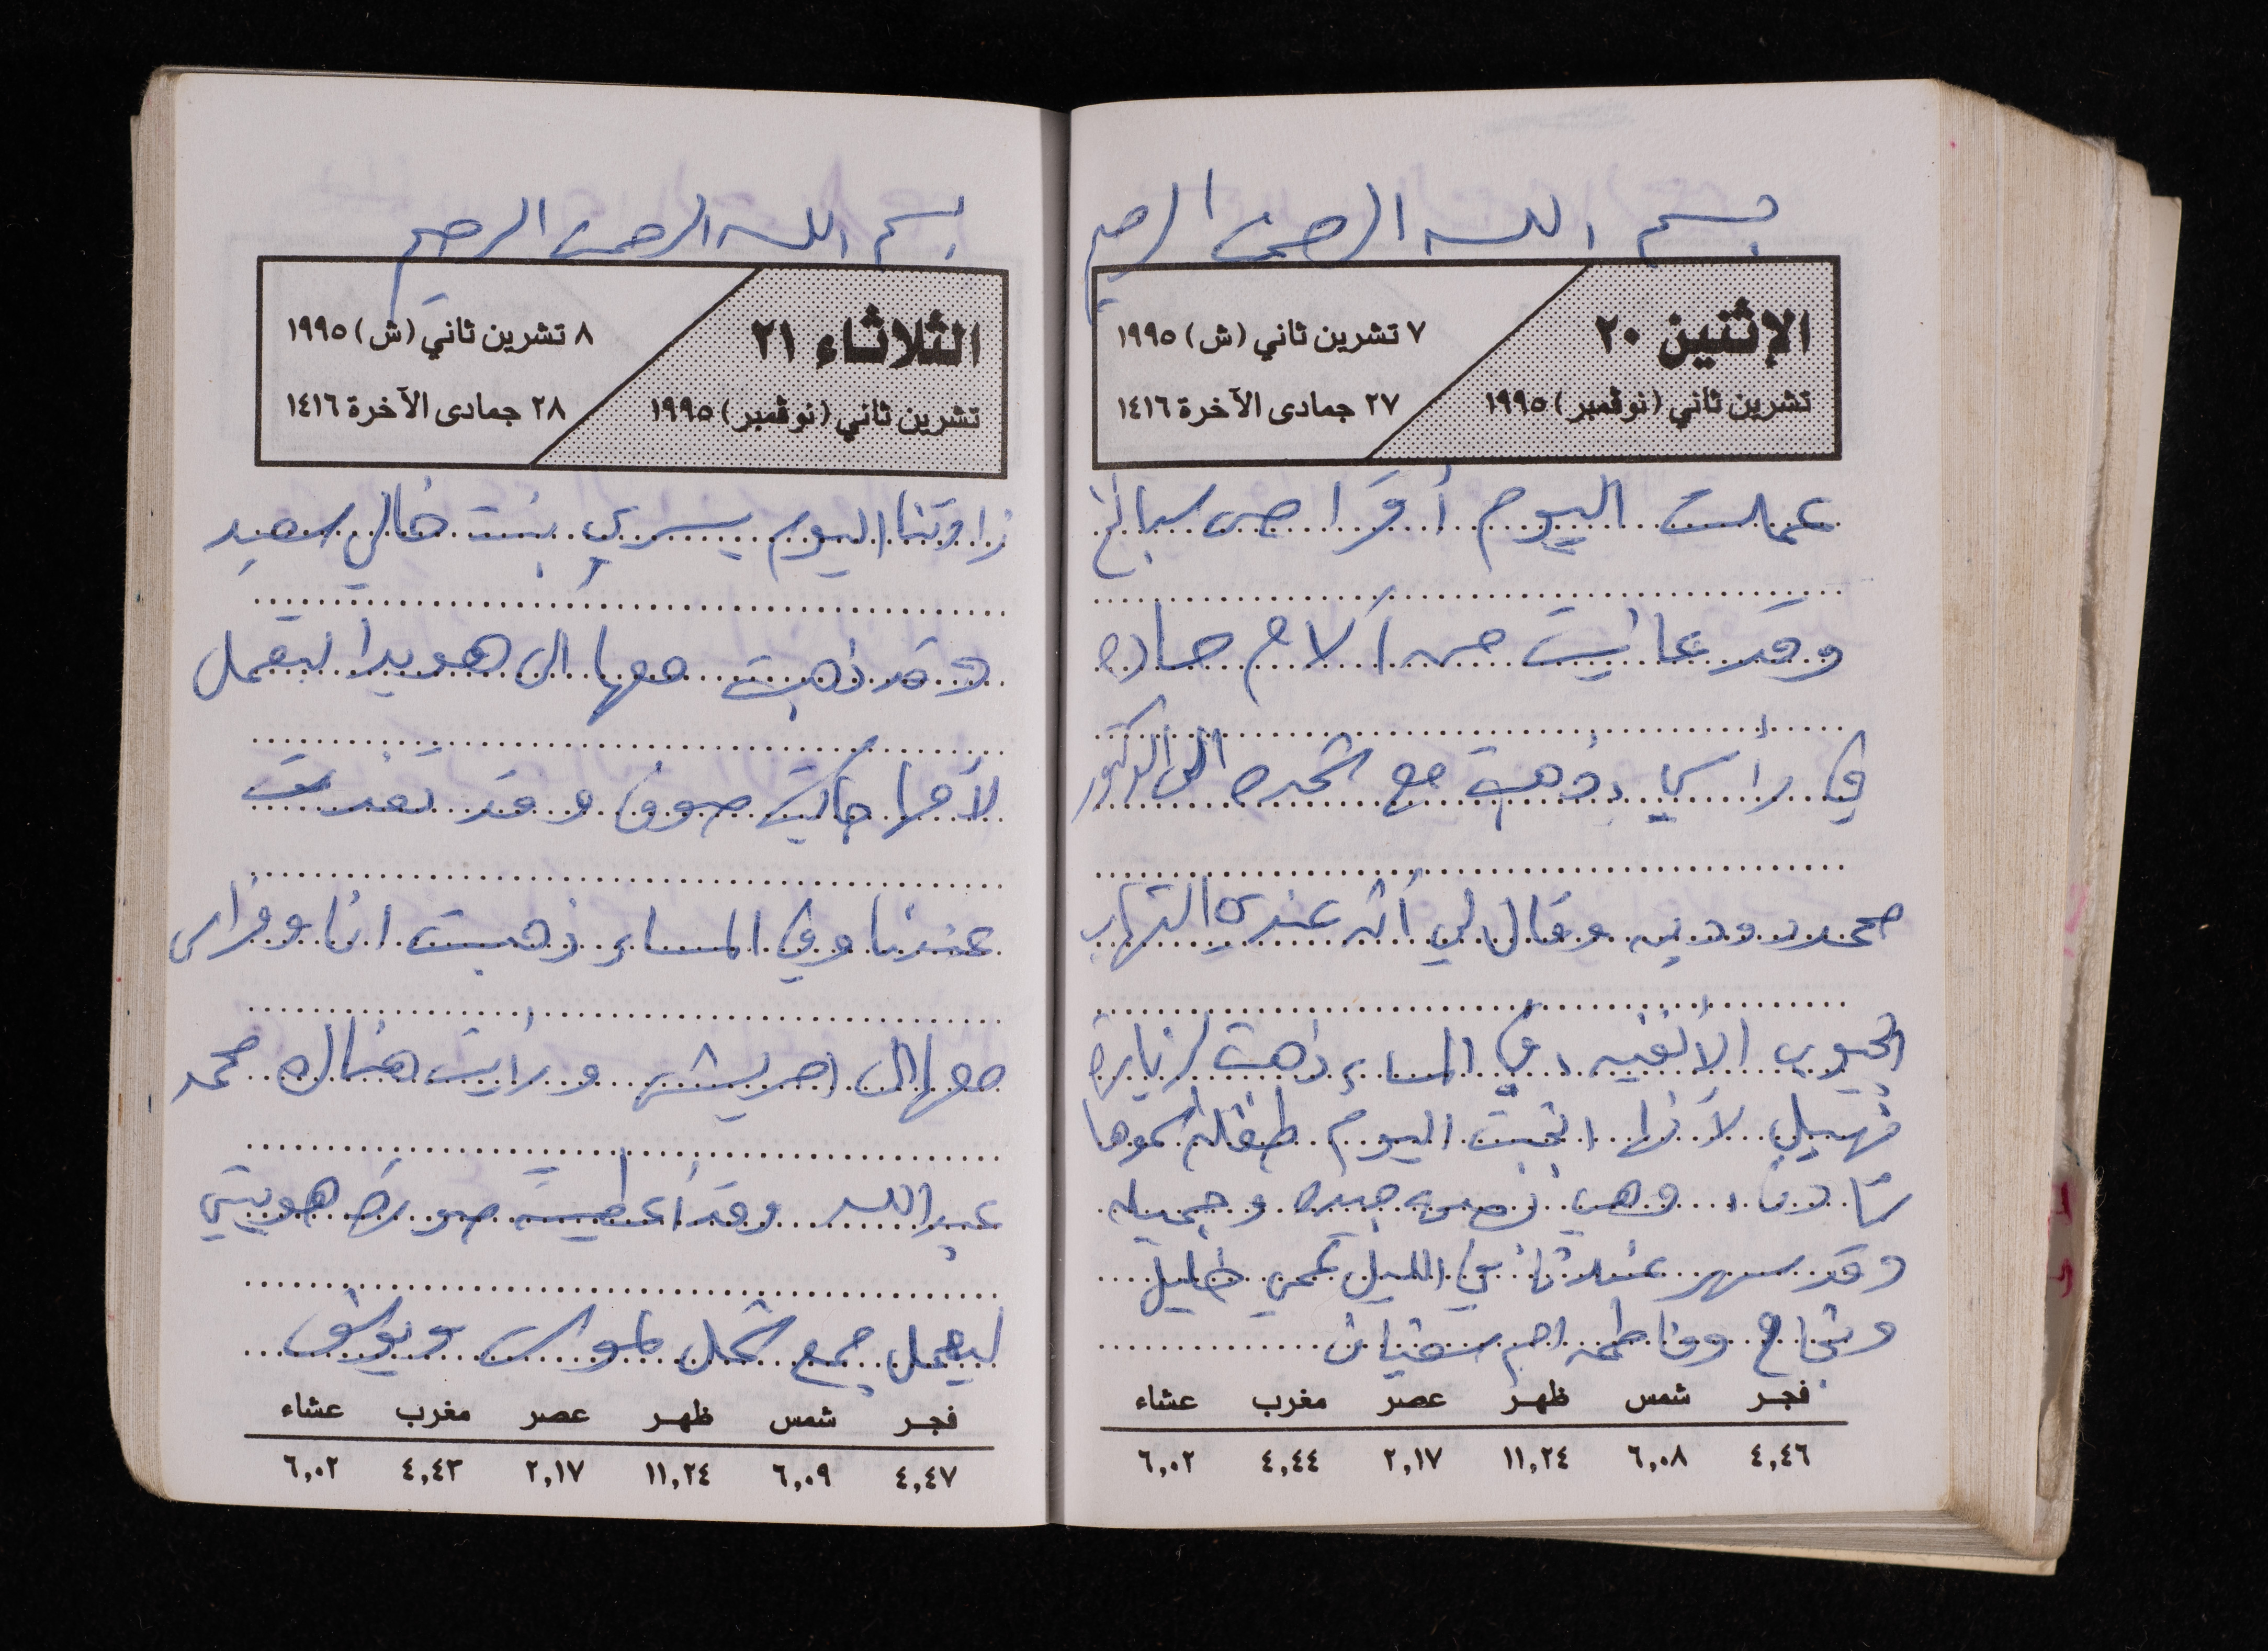 بسم الله الرحمن الرحيم
الإثنين ٢٠
٧ تشرين ثاني (ش) ١٩٩٥
تشرين ثاني (نوڤمبر) ١٩٩٥
٢٧ جمادى الآخرة ١٤١٦
عملت اليوم أقراص سبانخ
وقد عانيت من آلام حاده
في رأسي وذهبت مع الى الدكتور
محمد وقال لي أنه عندي التهاب
الجيوب الأنفيه وفي المساء ذهبت لزيارة
لأنها انجبت اليوم طفلة أسموها
وهي جيده وجميله
وقد سهر عندنا في الليل عمي خليل
ونجاح وفاطمه ام سفيان
فجر شمس ظهر عصر مغرب عشاء
٤,٤٦ ٦,٠٨ ١١,٢٤ ٢,١٧ ٤,٤٤ ٦,٠٢
بسم الله الرحمن الرحيم
الثلاثاء ٢١
٨ تشرين ثاني (ش) ١٩٩٥
تشرين ثاني (نوڤمبر) ١٩٩٥
٢٨ جمادى الآخرة ١٤١٦
زارتنا اليوم يسرى بنت خالي سعيد
وقد ذهبت معها الى هويدا لتعمل
صوف وقد تغدت
عندنا وفي المساء ذهبت انا وفراس
معها الى ورأيت هناك محمد
عبد الله وقد أعطيته صورة هويتي
ليعمل جمع شمل
فجر شمس ظهر عصر مغرب عشاء
٤,٤٧ ٦,٠٩ ١١,٢٤ ٢,١٧ ٤,٤٣ ٦,٠٢